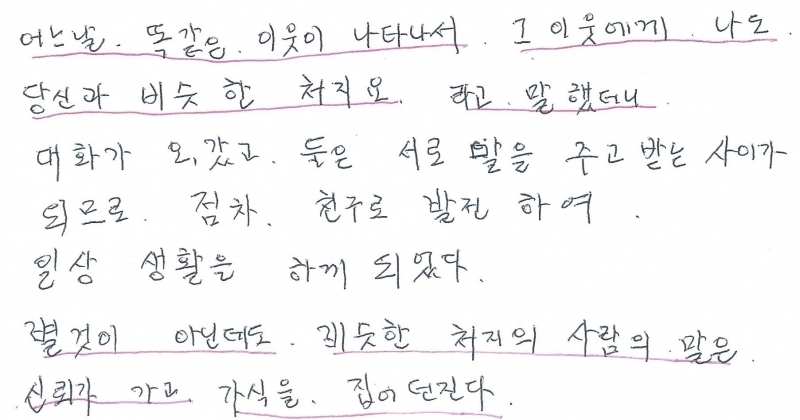 어느날. 똑같은. 이웃이 나타나서. 그 이웃에게. 나도.
당신과 비슷한 처지오. 라고. 말했더니
대화가 오,갔고. 둘은 서로 말을 주고 받는 사이가
되므로. 점차. 친구로 발전 하여.
일상 생활을 하게 되었다.
별것이 아닌데도. 비슷한 처지의 사람의 말은
신뢰가 가고. 가식을. 집어 던진다.